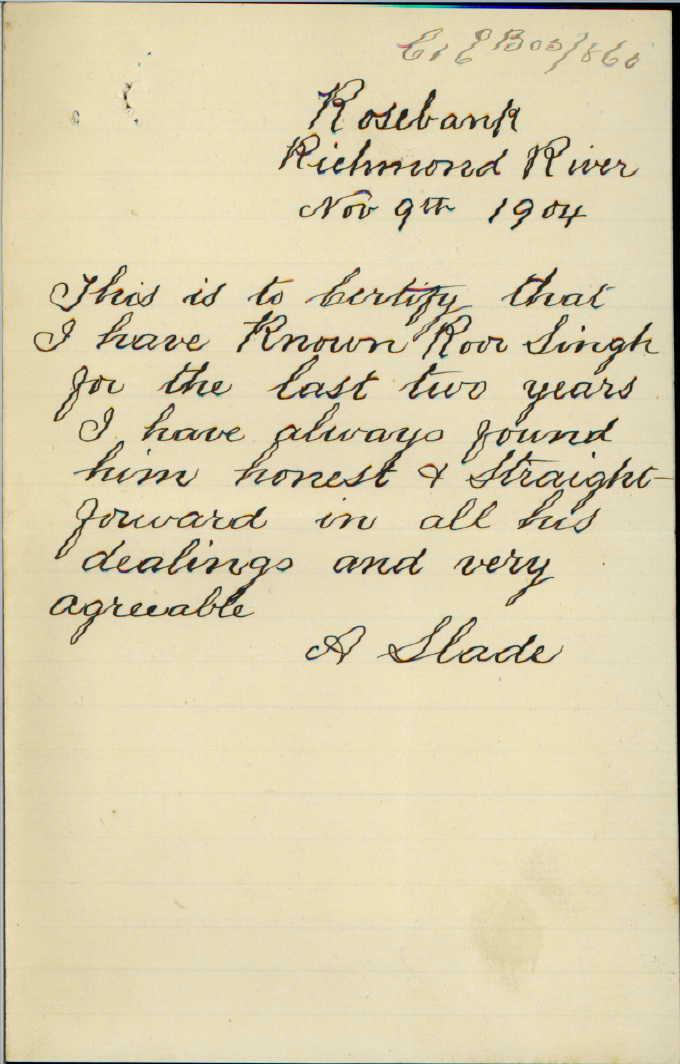 Rosebank
Richmond River
Nov 9th 1904
This is to Certify that
I have Known Roor Singh
for the last two years
I have always found
him honest & Straight-
forward in all his
dealings and very
agreeable
A Slade